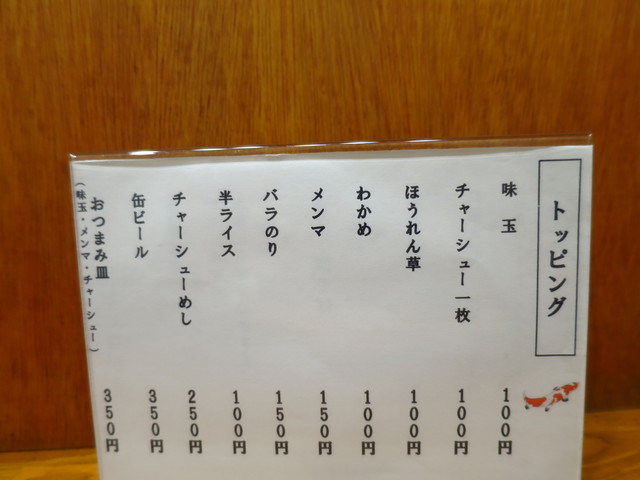 トッピング
味玉 100円
チャーシュー一枚 100円
ほうれん草 100円
わかめ 100円
メンマ 150円
バラのり 150円
半ライス 100円
チャーシューめし 250円
缶ビール 350円
おつまみ皿 350円
(味玉・メンマ・チャーシュー)